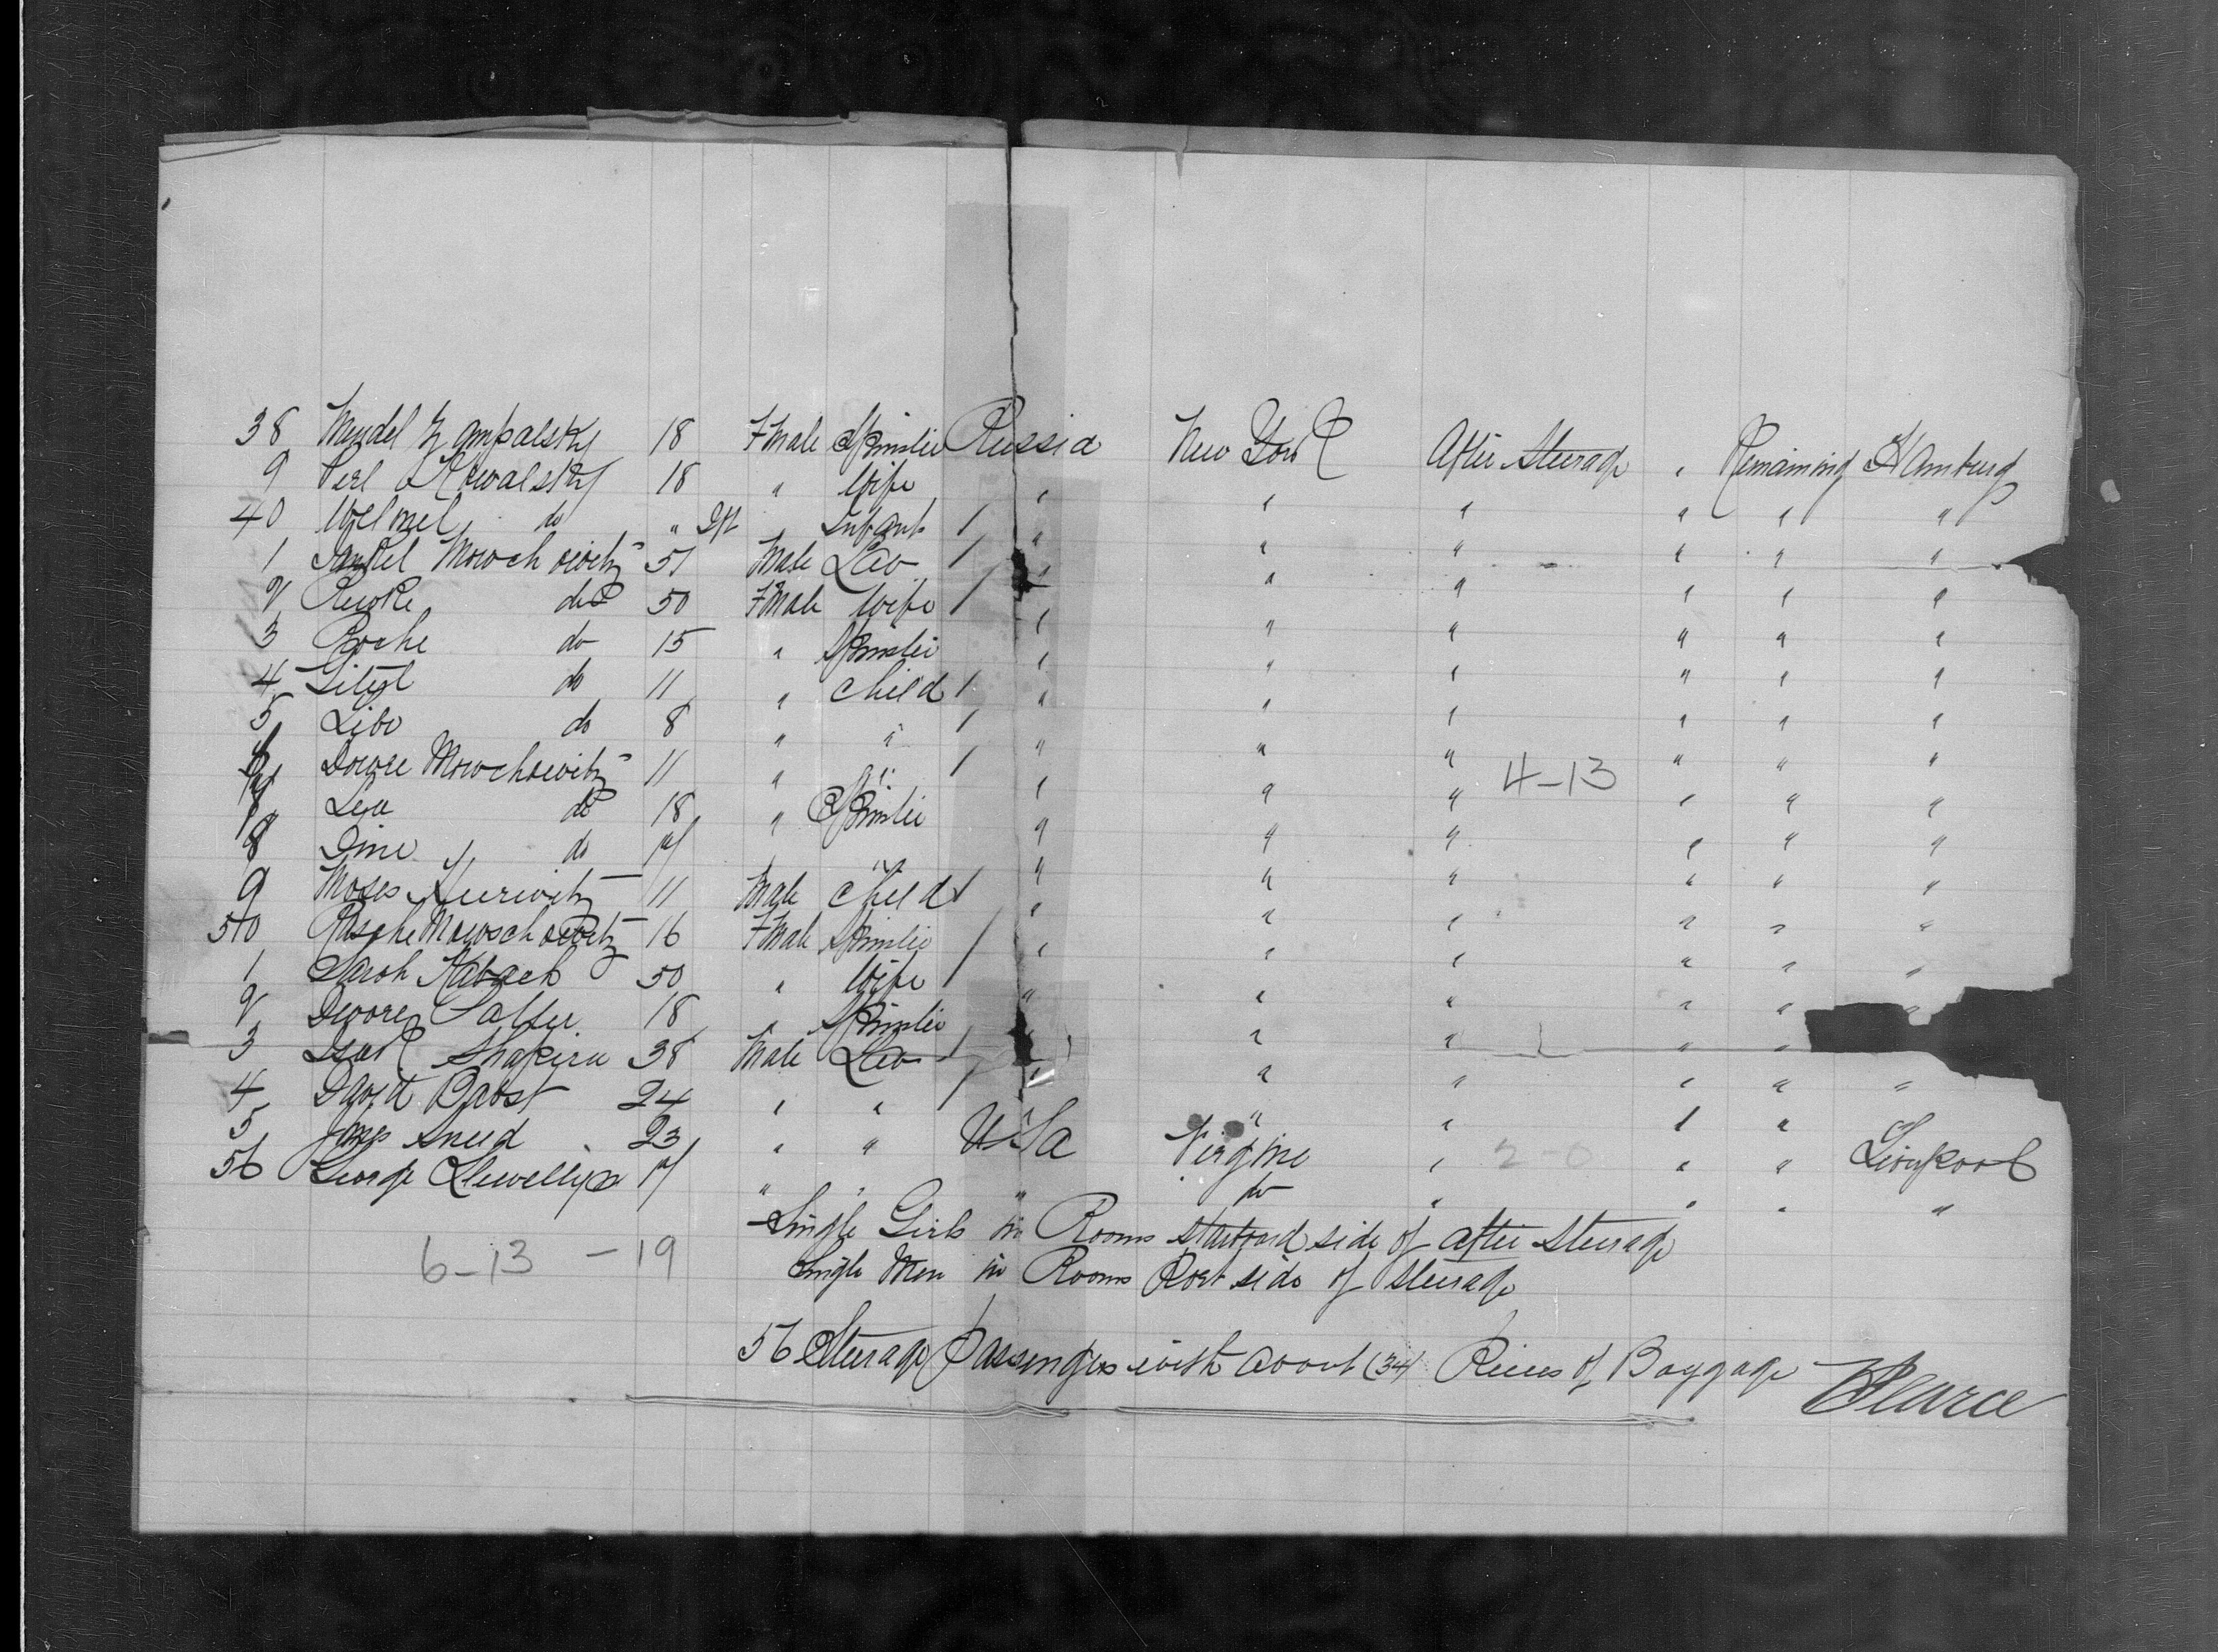 38 Mendel Zampalsky 18 Fmale Spinster Russia New York After Steerage " Remaining Hamburg
9 Perl Kowalsky 18 " Wife " " " " " "
40 Welmel do " Inft " Infant / " " " " " "
1 Jankel Mowchowitz 51 Male Lab / " " " " " "
2 Riwke do 50 Fmale Wife / " " " " " "
3 Roche do 15 " Spinster " " " " " "
4 Gitel do 11 " Child / " " " " " "
5 Libe do 8 " " / " " " " " "
Dowre Mowchowitz 11 " " / " " " " " "
4-13
Lea do 18 " Spinster " " " " " "
8 Dine do 17 " " " " " " "
9 Moses Hurwitz 11 Male Child / " " " " " "
50 Rasche Mowschowitz 16 Fmale Spinster / " " " " " "
1 Sarah Kaback 50 " Wife / " " " " " "
2 Dwore 18 " Spinster " " " " "
3 Isak Shapiru 38 Male Lab / " " " " "
4 David Pabst 24 " " / " " " " "
5 James Sneed 23 " " U.Sa Virgine " 2-0 " " Liverpool
56 George Llewellyn 17 " " " do " " " "
Single Girls in Rooms Starboard side of After Steerage
6-13 - 19
Single Men in Rooms Port side of Steerage
56 Steerage Passengers with about (34) Pieces of Baggage
Pearce